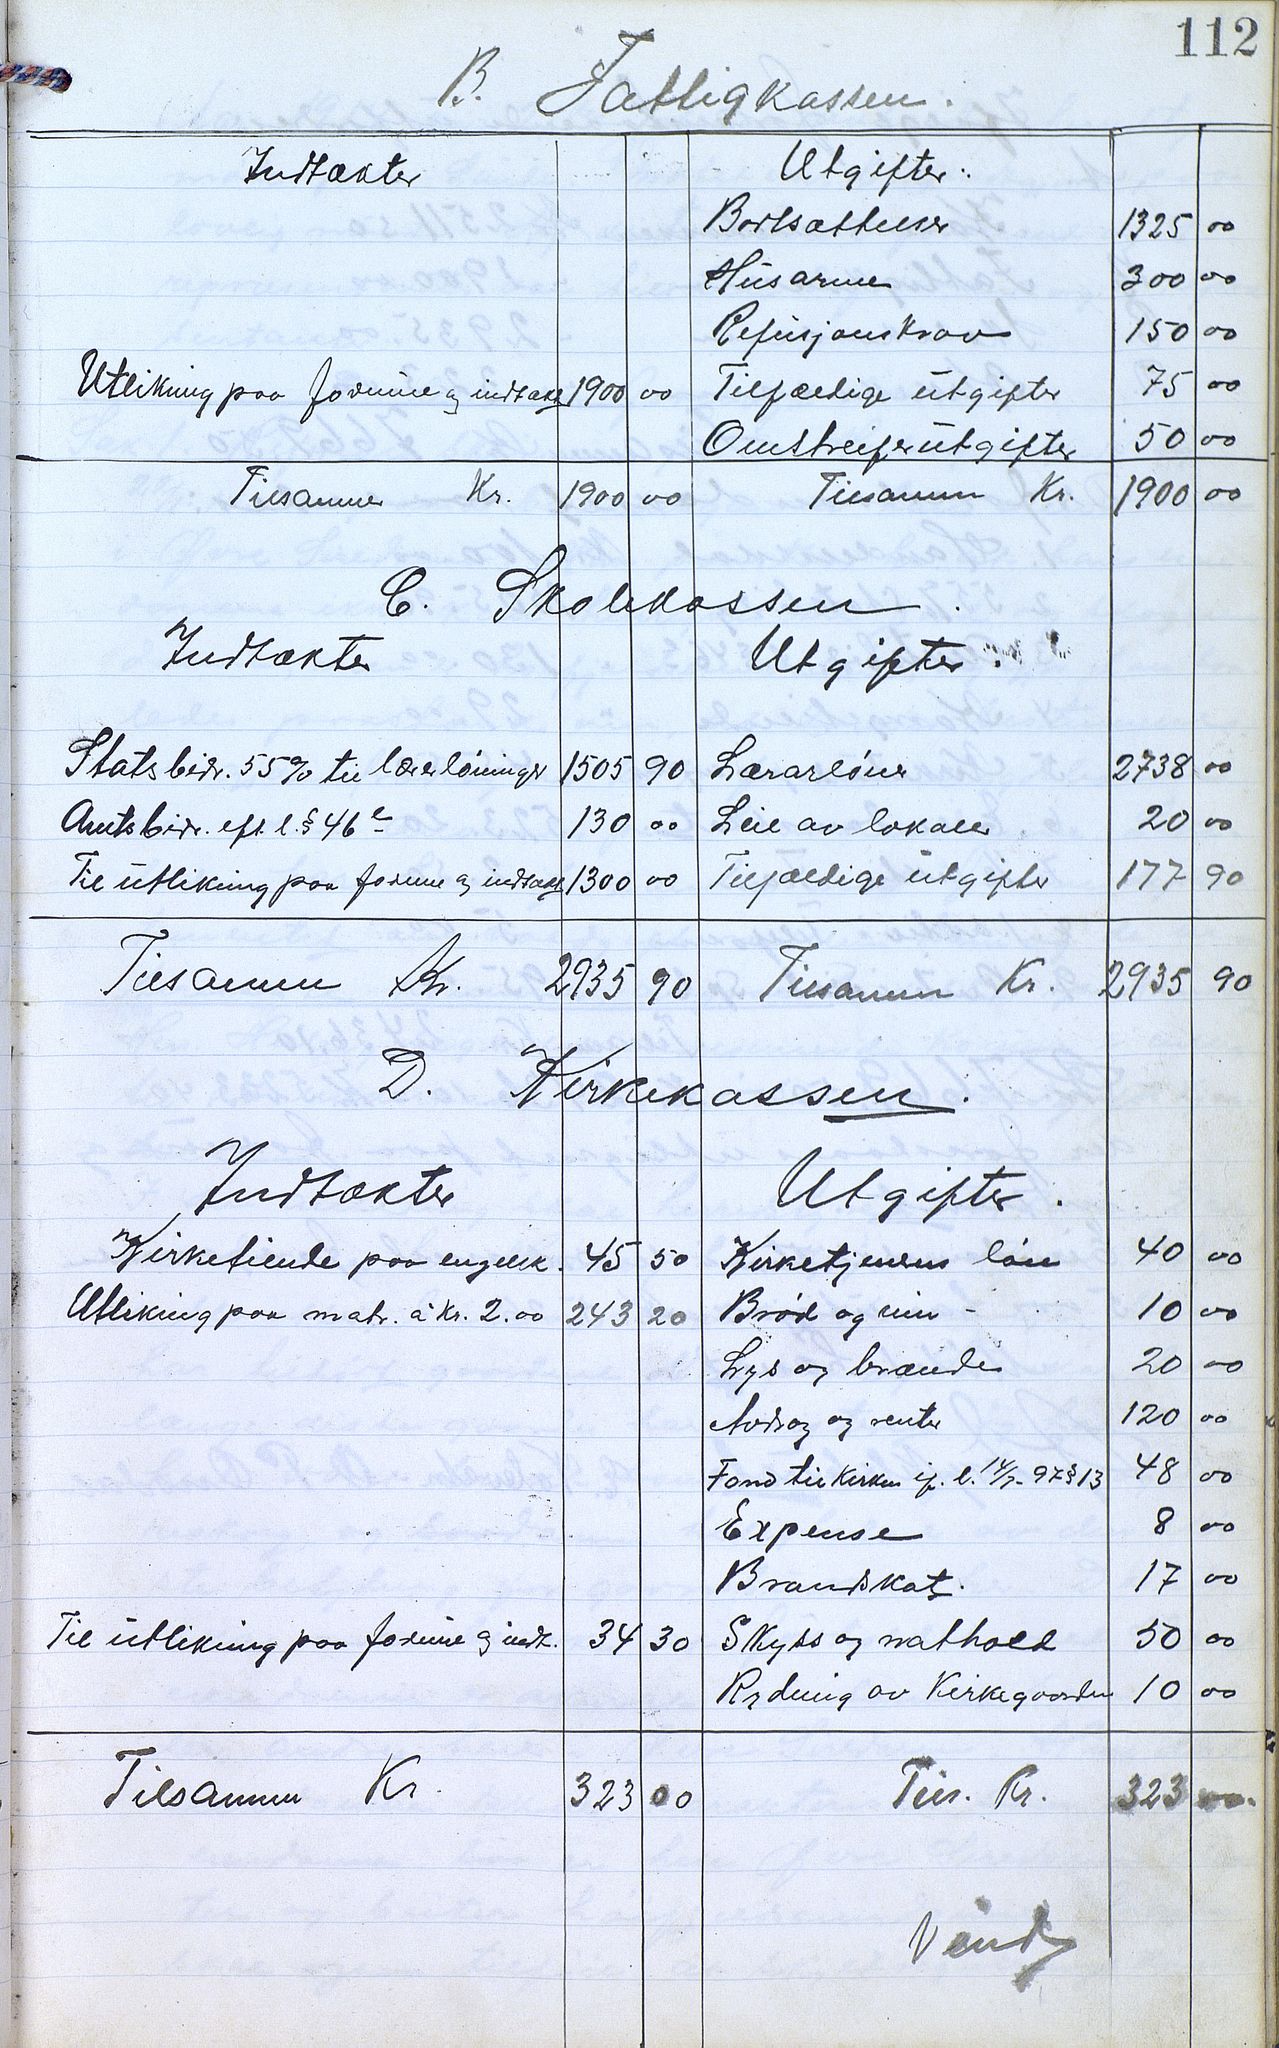 112
B. Fattigkassen.
Indtækter Utgifter.
Bortsættelser 1325 00
Husarme 300 00
Refusjonskrav 150 00
Utlikning paa formue og indtækt 1900 00 Tilfældige utgifter 75 00
Omstreiferutgifter 50 00
Tilsammen Kr. 1900 00 Tilsammen Kr. 1900 00
C. Skolekassen.
Indtækter Utgifter.
Statsbidr. 55% til lærerlöninger 1505 90 Lærarlöner 2738 00
Amtsbidr. eft. l. § 46 c 130 00 Leie av lokaler 20 00
Til utlikning paa formue og indtækt 1300 00 Tilfældige utgifter 177 90
Tilsammen Kr. 2935 90 Tilsammen Kr. 2935 90
D. Kirkekassen.
Indtækter Utgifter.
Kirketiende paa engelsk. 45 50 Kirketjenerens lön 40 00
Utlikning paa matr. à Kr. 2.00 243 20 Brød og vin - 10 00
Lys og brænde 20 00
Avdrag og renter 120 00
Fond til Kirken if. l. 14/7-97 § 13 48 00
Expense 8 00
Brandskat. 17 00
Til utlikning paa formue og indt. 34 30 Skyss og mathold 50 00
Rydning av Kirkegaarden 10 00
Tilsammen Kr. 323 00 Tils. Kr. 323 00.
Vend